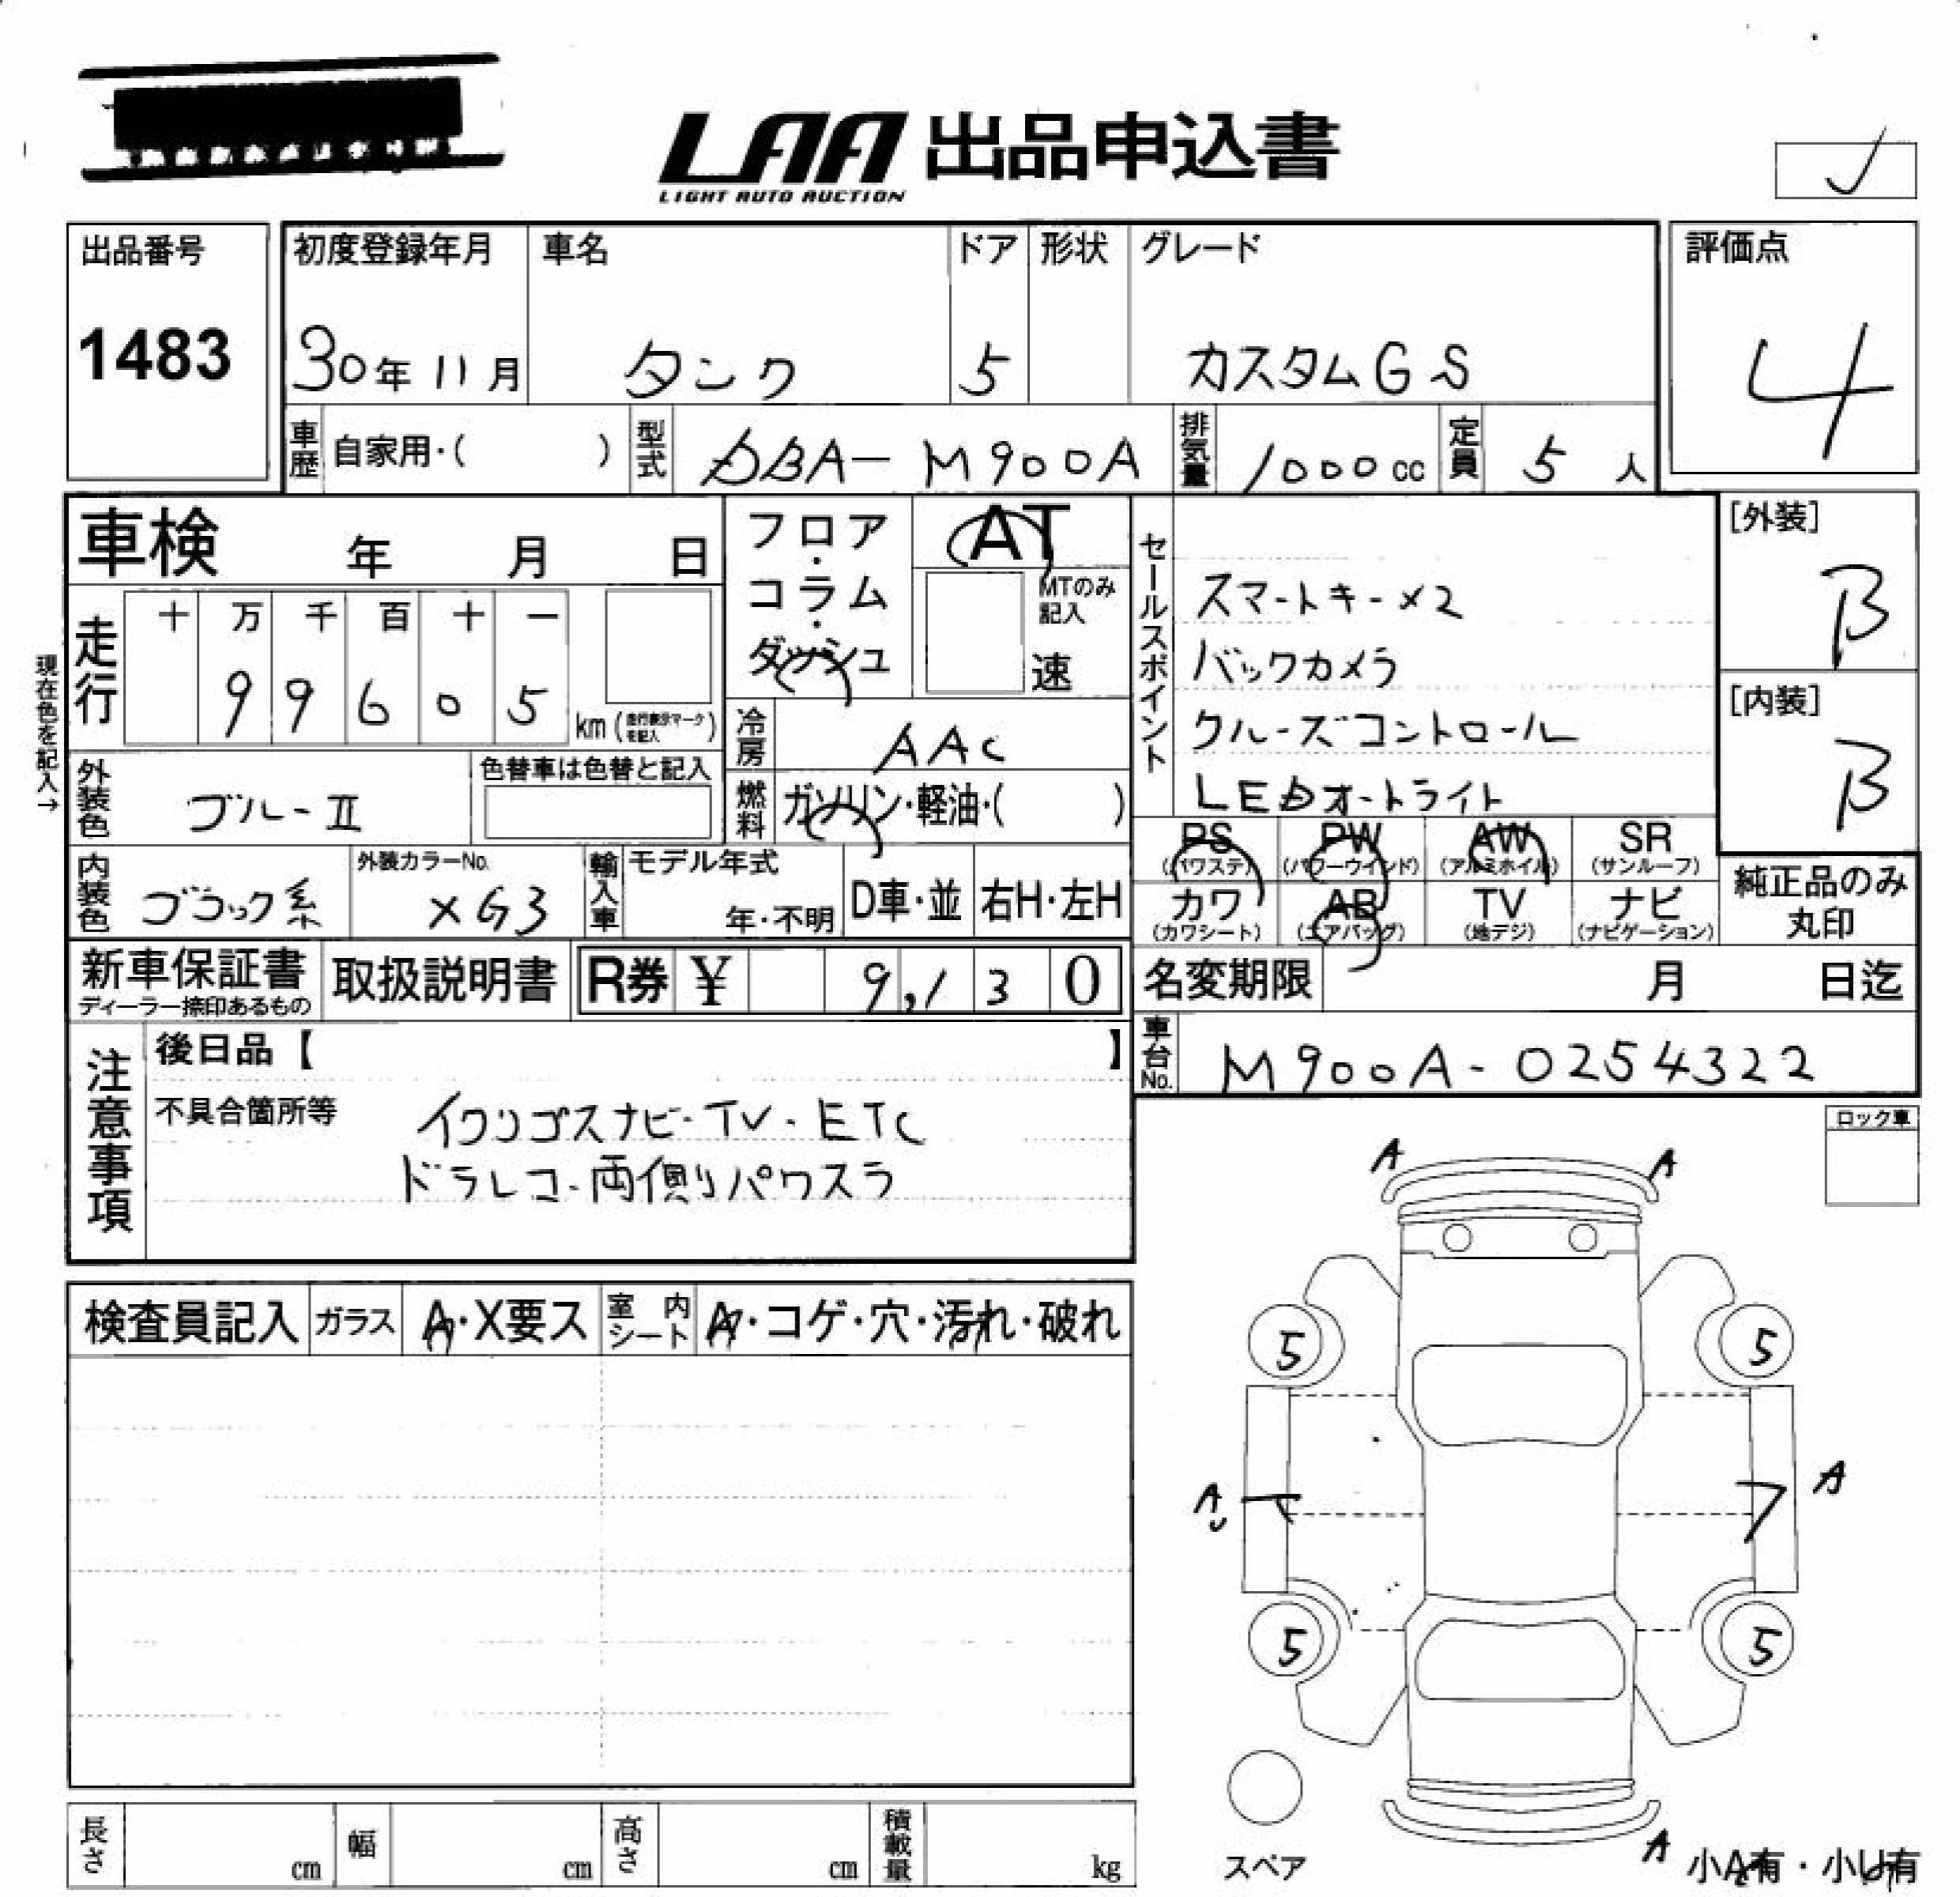 LAA 出品申込書
LIGHT AUTO AUCTION
出品番号
1483
初度登録年月
30年11月
車名
タンク
ドア
5
形状
グレード
カスタムGS
評価点
4
車歴
自家用・( )
型式
DBA-M900A
排気量
1000cc
定員
5人
車検 年 月 日
現在色を記入→
走行
十 万 千 百 十 一
9 9 6 0 5
km(走行表示マークを記入)
フロア・コラム・ダッシュ
AT
MTのみ記入
速
冷房
AAC
燃料
ガソリン・軽油・( )
セールスポイント
スマートキー×2
バックカメラ
クルーズコントロール
LEDオートライト
[外装]
B
[内装]
B
外装色
ブルーII
色替車は色替と記入
内装色
ブラック系
外装カラーNo.
XG3
輸入車
モデル年式
年・不明
D車・並
右H・左H
PS
(パワステ)
PW
(パワーウインド)
AW
(アルミホイル)
SR
(サンルーフ)
カワ
(カワシート)
AB
(エアバッグ)
TV
(地デジ)
ナビ
(ナビゲーション)
純正品のみ
丸印
新車保証書
ディーラー捺印あるもの
取扱説明書
R券 ¥ 9,130
名変期限 月 日迄
車台No.
M900A-0254322
注意事項
後日品【 】
不具合箇所等
イクリプスナビ・TV・ETC
ドラレコ・両側パワスラ
ロック車
検査員記入
ガラス
A・X要ス
室内シート
A・コゲ・穴・汚れ・破れ
A
A
5
5
A
A
U
5
5
スペア
A
小A有・小U有
長さ
cm
幅
cm
高さ
cm
積載量
kg